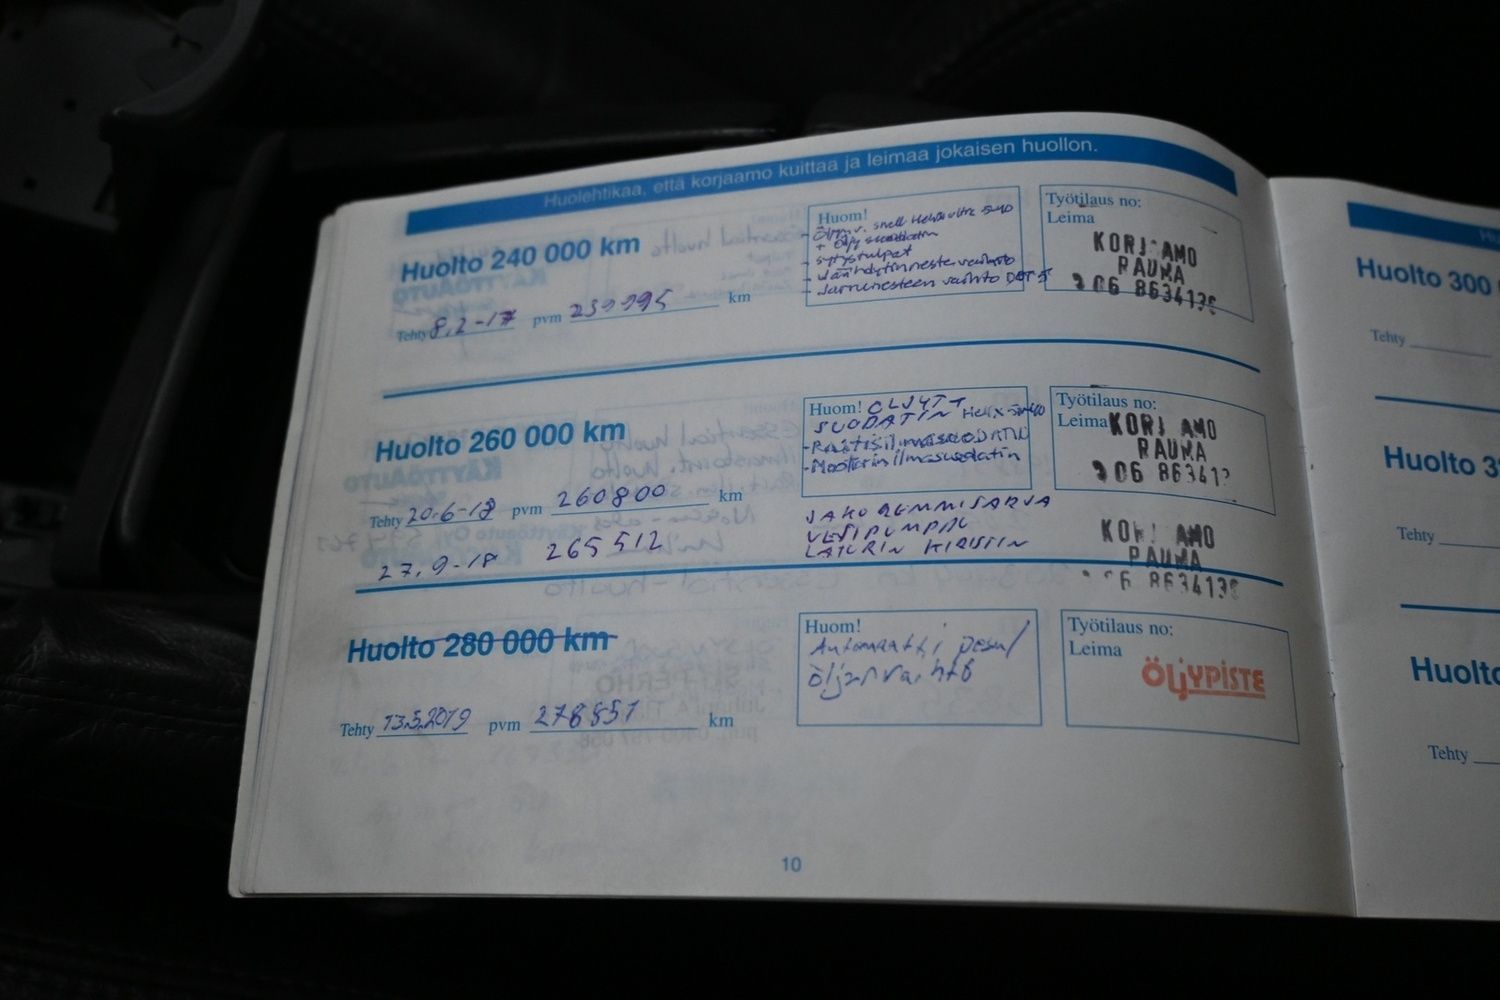 Huolehtikaa, että korjaamo kuittaa ja leimaa jokaisen huollon.
Huolto 240 000 km
Tehty 8.2-17 pvm 239995 km
Huom!
Öljyn v. shell Helix ultra 5w40
+ öljysuodatin
- sytytystulpat
- Jäähdytinnesteenvaihto
- Jarrunesteen vaihto DOT 5
Työtilaus no:
Leima
KORJAMO
RAUMA
06 863413
Huolto 260 000 km
Tehty 20.6-18 pvm 260800 km
27.9-18 265512
Huom! ÖLJYT +
SUODATIN Helix 5w40
- Raitisilmasuodatin
- Moottorin ilmasuodatin
JAKOREMMISARJA
VESIPUMPPU
LATURIN HIHNA
Työtilaus no:
Leima KORJAMO
RAUMA
06 863413
KORJAMO
RAUMA
06 863413
Huolto 280 000 km
Tehty 13.5.2019 pvm 278851 km
Huom!
Automaatti pesu/
öljynvaihto
Työtilaus no:
Leima
ÖLJYPISTE
10
Huolto 300
Tehty
Huolto 3
Tehty
Huolto
Tehty